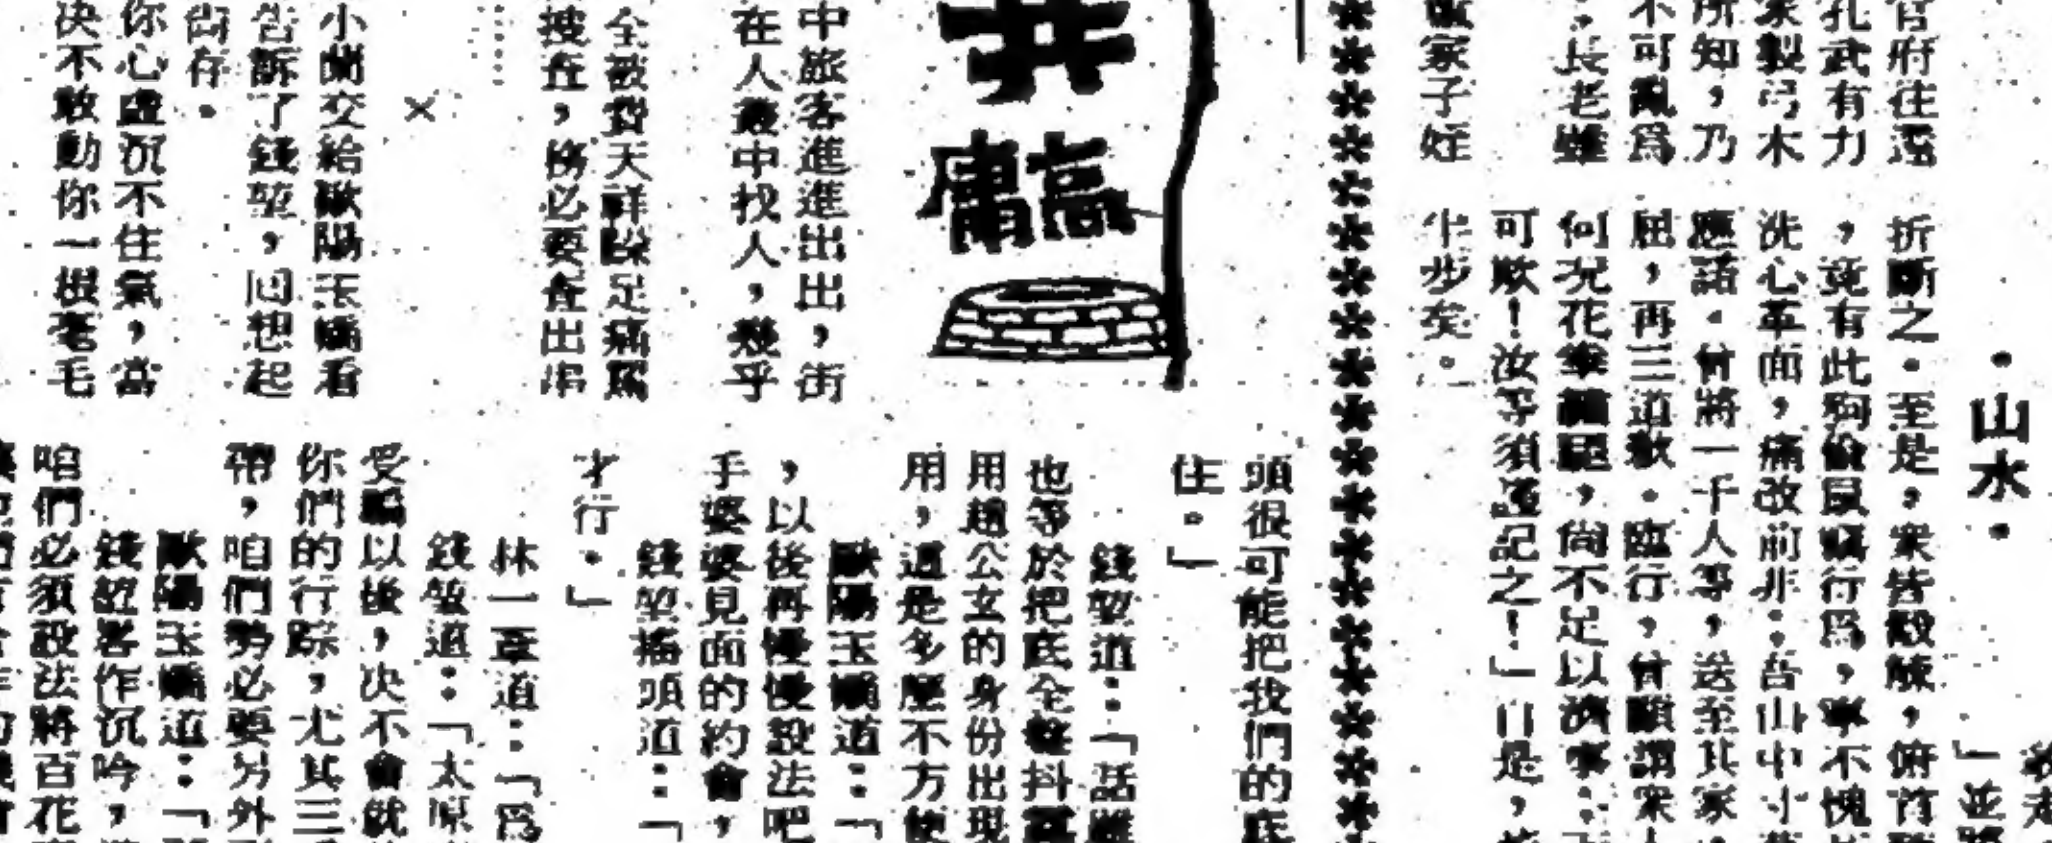 ・山水・
官府往還
孔武有力
家製弓木
所知，乃
不可亂為
，長老雖
家子姪
折斷之。至是，衆皆觳觫，俯首
，竟有此狗偷鼠竊行爲，寧不愧
洗心革面，痛改前非。吾山中
應諾。曾將一千人等，送至其家
屈，再三道歉。臨行，曾顧謂衆人
何況花拳繡腿，尙不足以濟事
可欺！汝等須謹記之！」自是，
半步矣。
井
高庸
中旅客進進出出，街
在人叢中找人，幾乎
全被費天祥跺足痛罵
搜查，務必要查出串
×
小蘭交給歐陽玉嬌看
告訴了錢堃，回想起
尙存。
你心虛沉不住氣，當
决不敢動你一根毫毛
頭很可能把我們的底
住。」
錢堃道：「話雖
也等於把底全盤抖露
用趙公玄的身份出現
用，道是多麼不方便
歐陽玉嬌道：「
，以後再慢慢設法吧
手婆婆見面的約會，
錢堃搖頭道：「
才行。」
林一葦道：「爲
錢堃道：「太原
受騙以後，决不會就
你們的行踪，尤其三
帶，咱們勢必要另外
歐陽玉嬌道：「
錢堃畧作沉吟，
咱們必須設法將百花